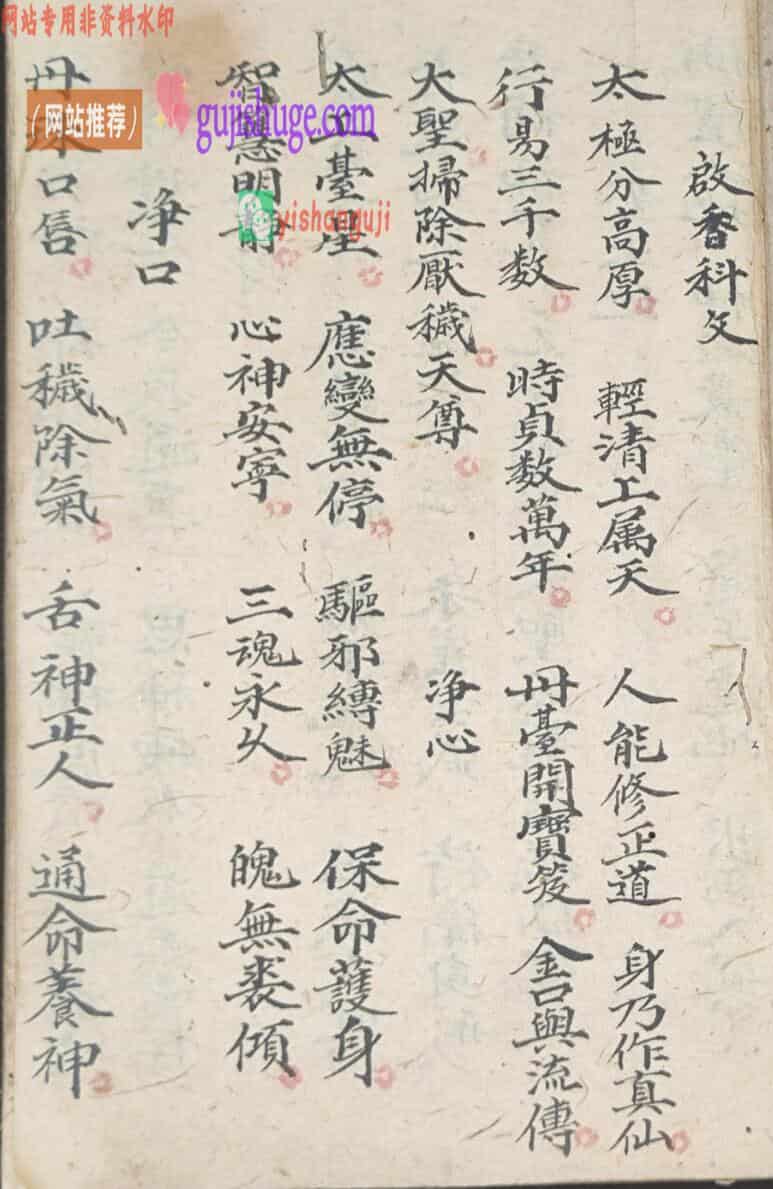 啟香科文
太極分高厚 輕清上属天 人能修正道 身乃作真仙
行易三千数 時貞数萬年 丹臺開寶笈 金口與流傳
大聖掃除厭穢天尊 净心
太上臺星 應變無停 驅邪縛魅 保命護身
智慧明凈 心神安寧 三魂永久 魄無喪傾
净口
丹朱口唇 吐穢除氣 舌神正人 通命養神
网站专用非资料水印
（网站推荐）
gujishuge.com
yishanguji